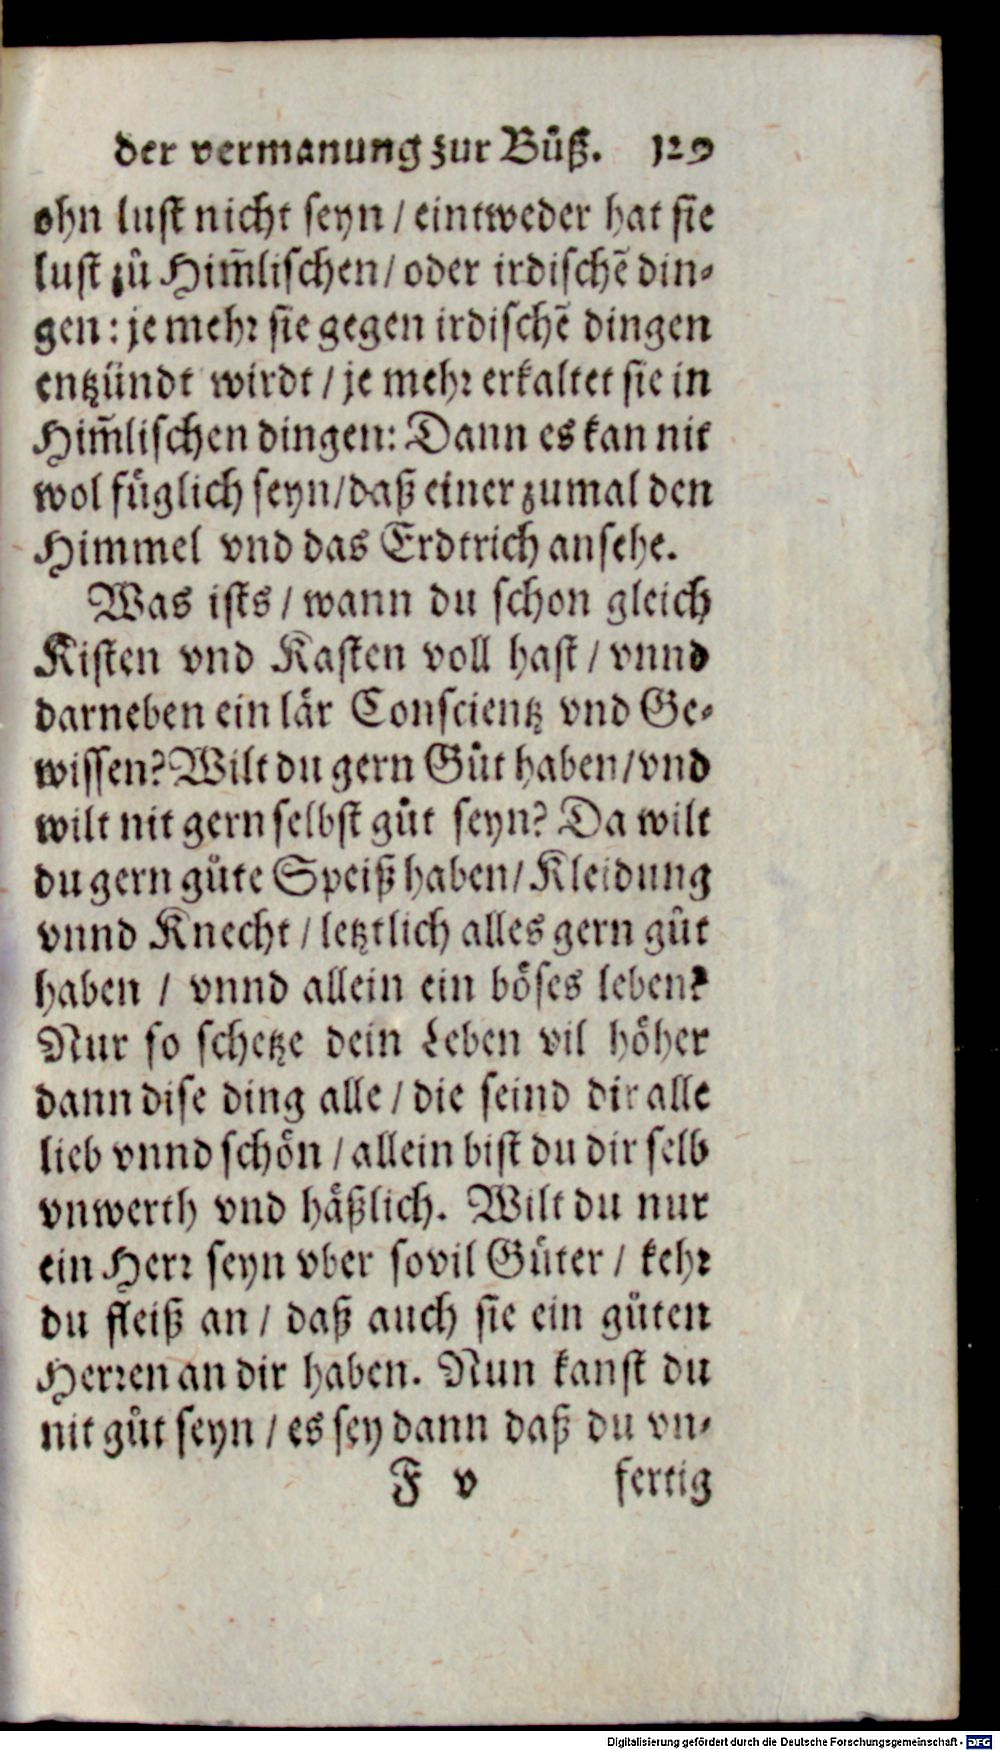 der vermanung zur Bůß. 129
ohn lust nicht seyn / eintweder hat sie
lust zů Him̃lischen / oder irdischẽ din-
gen : je mehr sie gegen irdischẽ dingen
entzündt wirdt / je mehr erkaltet sie in
Him̃lischen dingen: Dann es kan nit
wol füglich seyn / daß einer zumal den
Himmel vnd das Erdtrich ansehe.
Was ists / wann du schon gleich
Kisten vnd Kasten voll hast / vnnd
darneben ein lär Conscientz vnd Ge-
wissen? Wilt du gern Gůt haben / vnd
wilt nit gern selbst gůt seyn? Da wilt
du gern gůte Speiß haben / Kleidung
vnnd Knecht / letztlich alles gern gůt
haben / vnnd allein ein böses leben?
Nur so schetze dein Leben vil höher
dann dise ding alle / die seind dir alle
lieb vnnd schön / allein bist du dir selb
vnwerth vnd häßlich. Wilt du nur
ein Herr seyn vber sovil Güter / kehr
du fleiß an / daß auch sie ein gůten
Herren an dir haben. Nun kanst du
nit gůt seyn / es sey dann daß du vn-
F v fertig
Digitalisierung gefördert durch die Deutsche Forschungsgemeinschaft - DFG